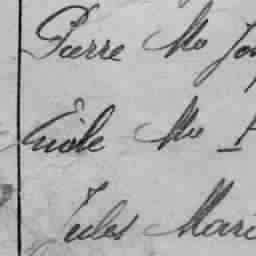 Pierre Mo Jos
Emile Mo
Jules Mari